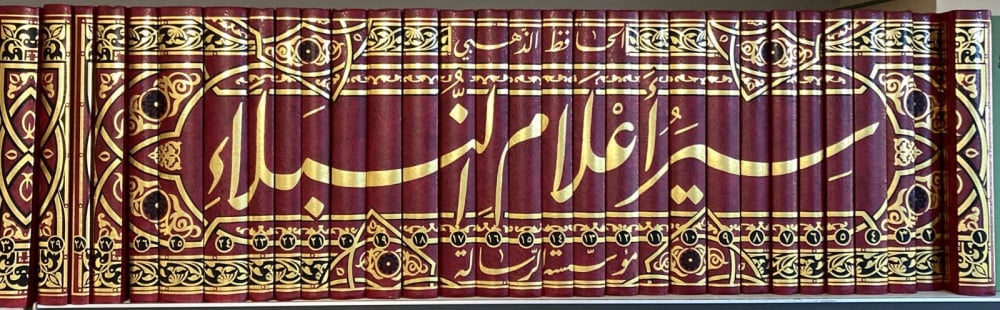 الحافظ الذهبي
سير أعلام النبلاء
١ ٢ ٣ ٤ ٥ ٦ ٧ ٨ ٩ ١٠ ١١ ١٢ ١٣ ١٤ ١٥ ١٦ ١٧ ١٨ ١٩ ٢٠ ٢١ ٢٢ ٢٣ ٢٤ ٢٥ ٢٦ ٢٧ ٢٨ ٢٩ ٣٠
مؤسسة الرسالة